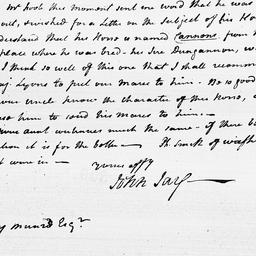 Mr Hook this moment sent me word that he was
, for a Letter on the Subject of his Ho
understand that his Horse is named Cannons from
place where he was bred his Sire Dungannon, wa
I think so well of this one that I shall recomm
Maj. Lyons to put our Mares to him. Be so good
Uncle know the character of the Horse, a
him to send his Mares to him.—
aunt continues much the same – if there b
it is for the better — Th
were in —
Yours affy
John Jay
Munro Esqr